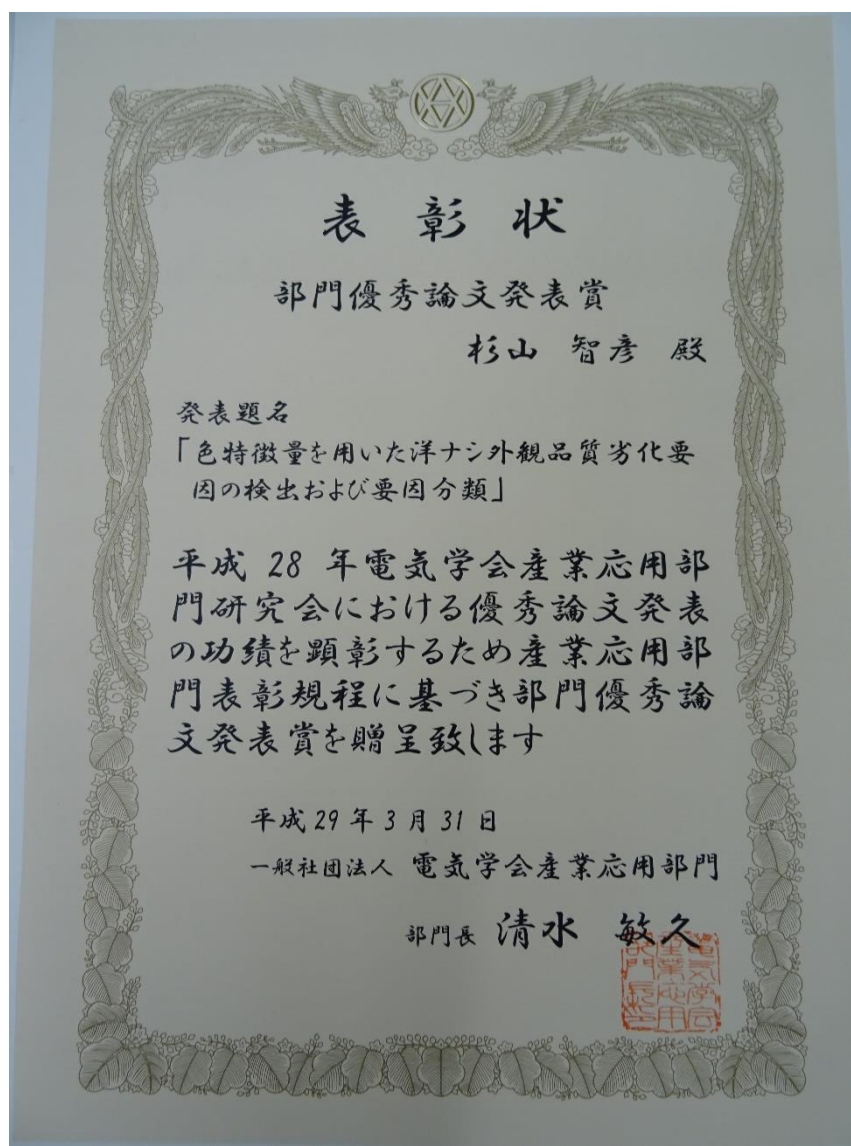 表彰状
部門優秀論文発表賞
杉山 智彦 殿
発表題名
「色特徴量を用いた洋ナシ外観品質劣化要
因の検出および要因分類」
平成 28 年電気学会産業応用部
門研究会における優秀論文発表
の功績を顕彰するため産業応用部
門表彰規程に基づき部門優秀論
文発表賞を贈呈致します
平成 29 年 3 月 31 日
一般社団法人 電気学会産業応用部門
部門長 清水 敏久
電気学会
産業応用
部門長印